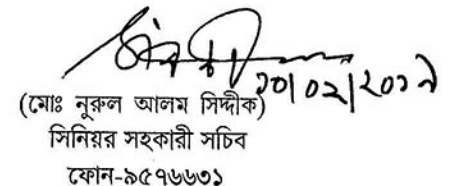 ২০/০২/২০১৯
(মোঃ নূরুল আলম সিদ্দীক)
সিনিয়র সহকারী সচিব
ফোন-৯৫৭৬৬৩১